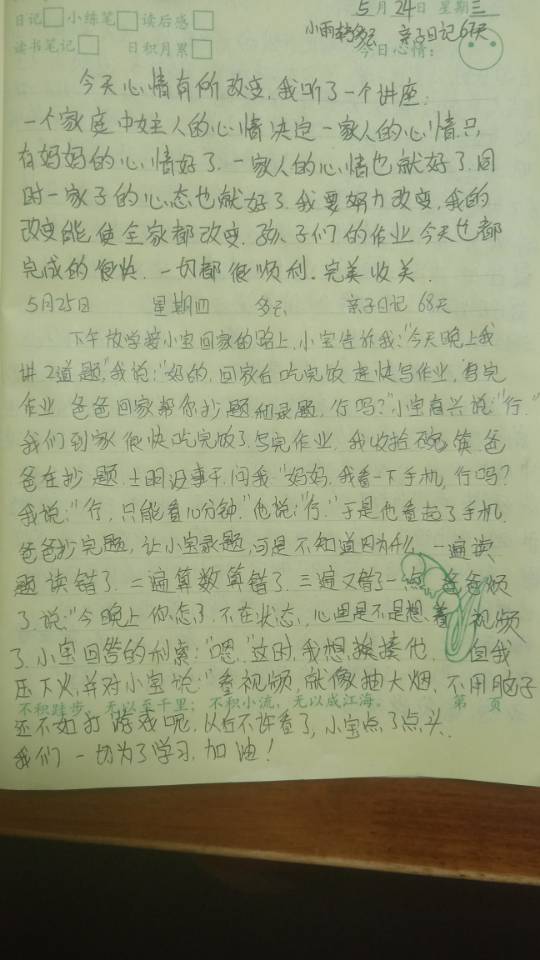 5月24日 星期三
日记 小练笔 读后感
小雨转多云 亲子日记67天
读书笔记 日积月累 今日心情:
今天心情有所改变,我听了一个讲座:
一个家庭中女主人的心情决定一家人的心情.只
有妈妈的心情好了.一家人的心情也就好了.同
时一家子的心态也就好了.我要努力改变.我的
改变能使全家都改变.孩子们的作业今天也都
完成的很快.一切都很顺利.完美收关.
5月25日 星期四 多云 亲子日记 68天
下午放学接小宝回家的路上,小宝告诉我:"今天晚上我
讲2道题,"我说:"好的,回家后吃完饭赶快写作业,写完
作业爸爸回家帮你抄题和录题,行吗?"小宝高兴说:"行."
我们到家很快吃完饭了.写完作业.我收拾碗筷爸
爸在抄题.土明没事干.问我"妈妈,我看一下手机,行吗?"
我说:"行,只能看10分钟."他说:"行."于是他看起了手机.
爸爸抄完题,让小宝录题,可是不知道因为什么,一遍读
题读错了.二遍算数算错了.三遍又错了一点 爸爸烦
了.说:"今晚上你怎了.不在状态.,心里是不是想着视频
了.小宝回答的利索:"嗯."这时,我想揍揍他. 但我
压下火,并对小宝说:"看视频,就像抽大烟,不用脑子
不积跬步,无以至千里;不积小流,无以成江海。 第 页
还不如打游戏呢.以后不许看了,小宝点了点头.
我们一切为了学习.加油!